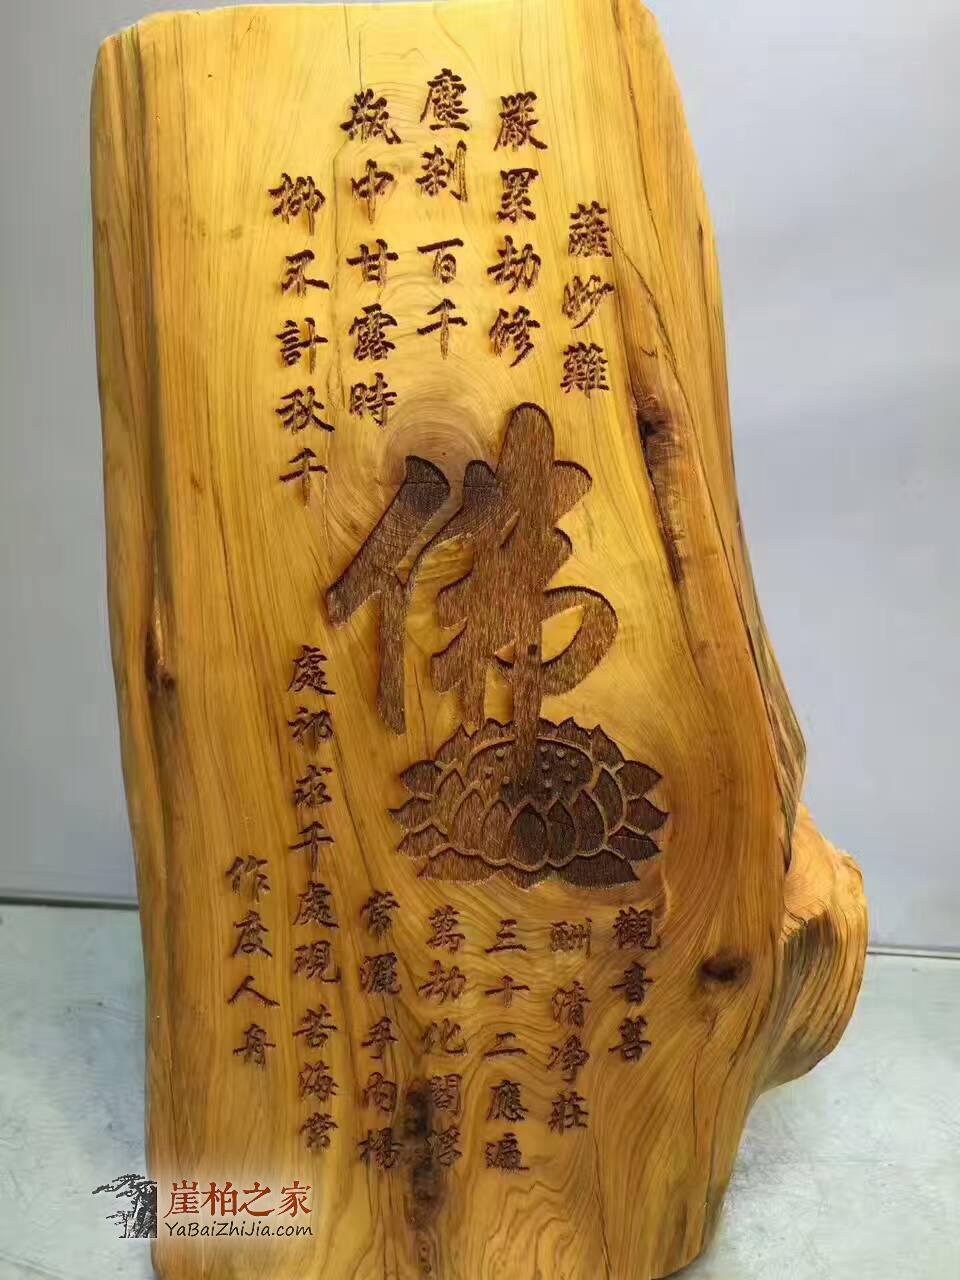 觀音菩
薩妙難
酬清净莊
嚴累劫修
三十二應遍
塵刹百千
萬劫化閻浮
瓶中甘露時
常灑手內楊
柳不計秋千
處祁求千處現苦海常
作度人舟
佛
崖柏之家
YaBaiZhiJia.com